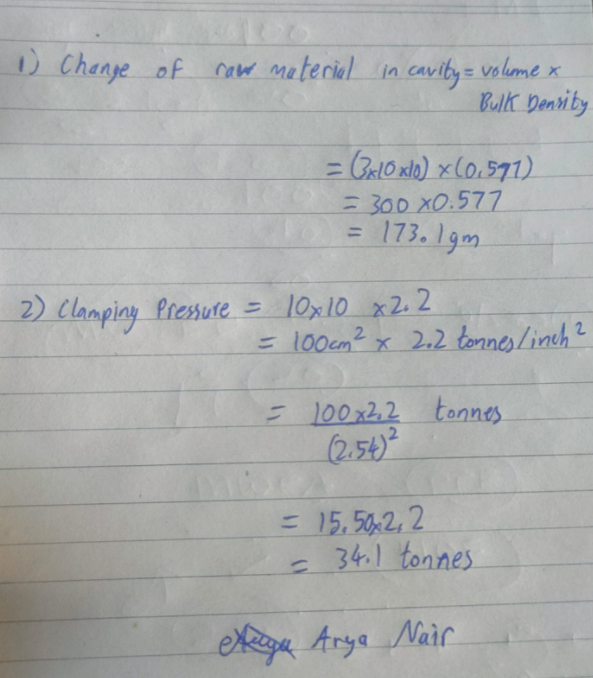 1) Change of raw material in cavity = volume x
Bulk Density
= (3x10x10) x (0.577)
= 300 x 0.577
= 173.1 gm
2) Clamping Pressure = 10x10 x 2.2
= 100cm² x 2.2 tonnes/inch²
= 100x2.2 tonnes
(2.54)²
= 15.50x2.2
= 34.1 tonnes
Arya Nair